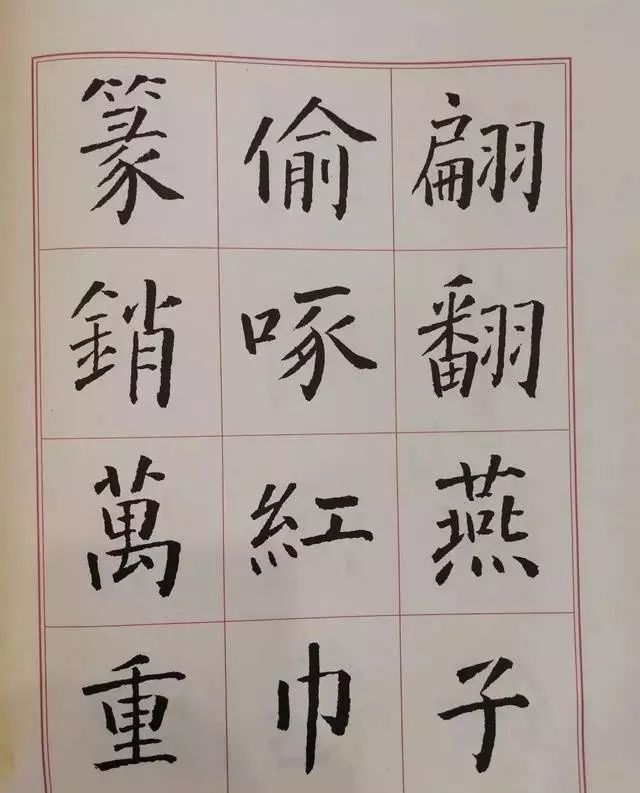 翩翻燕子
偷啄紅巾
篆銷萬重